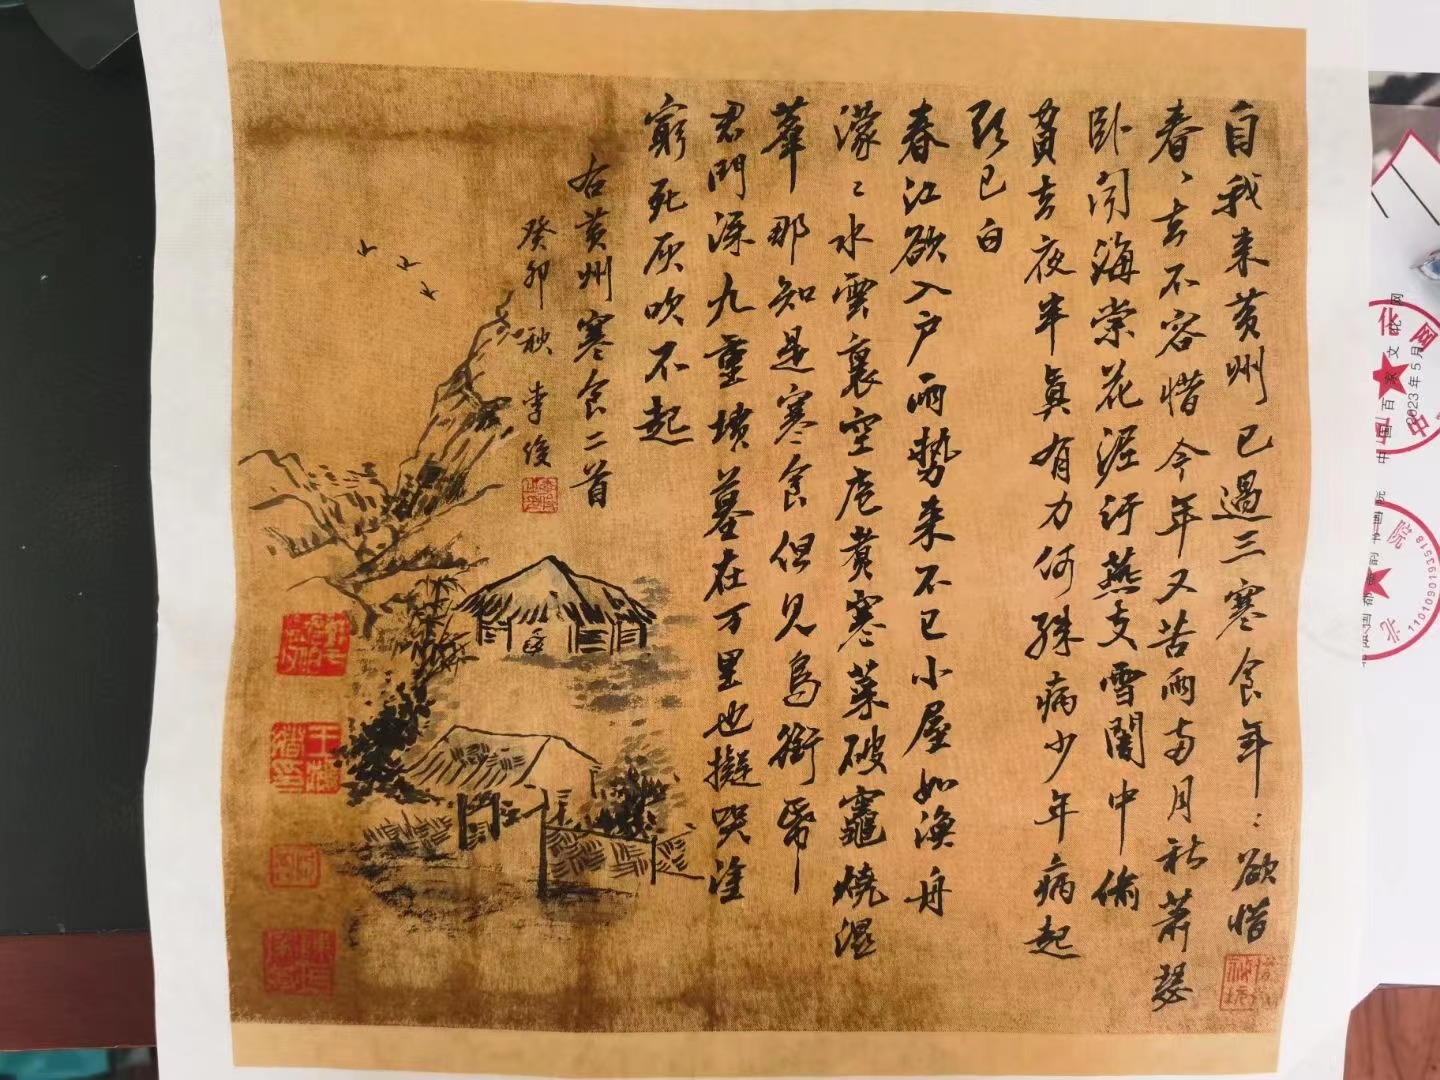 自我来黄州已過三寒食年：欲惜
春、去不容惜今年又苦雨两月秋萧瑟
卧闻海棠花泥汙燕支雪闇中偷
負去夜半真有力何殊病少年病起
头已白
春江欲入户雨势来不已小屋如渔舟
濛：水雲裏空庖煮寒菜破竈燒湿
葦那知是寒食但见烏銜帋
君門深九重墳墓在万里也擬哭塗
窮死灰吹不起
右黄州寒食二首
癸卯秋 李俊
中国百家文化网
2023年5月
1101090193518